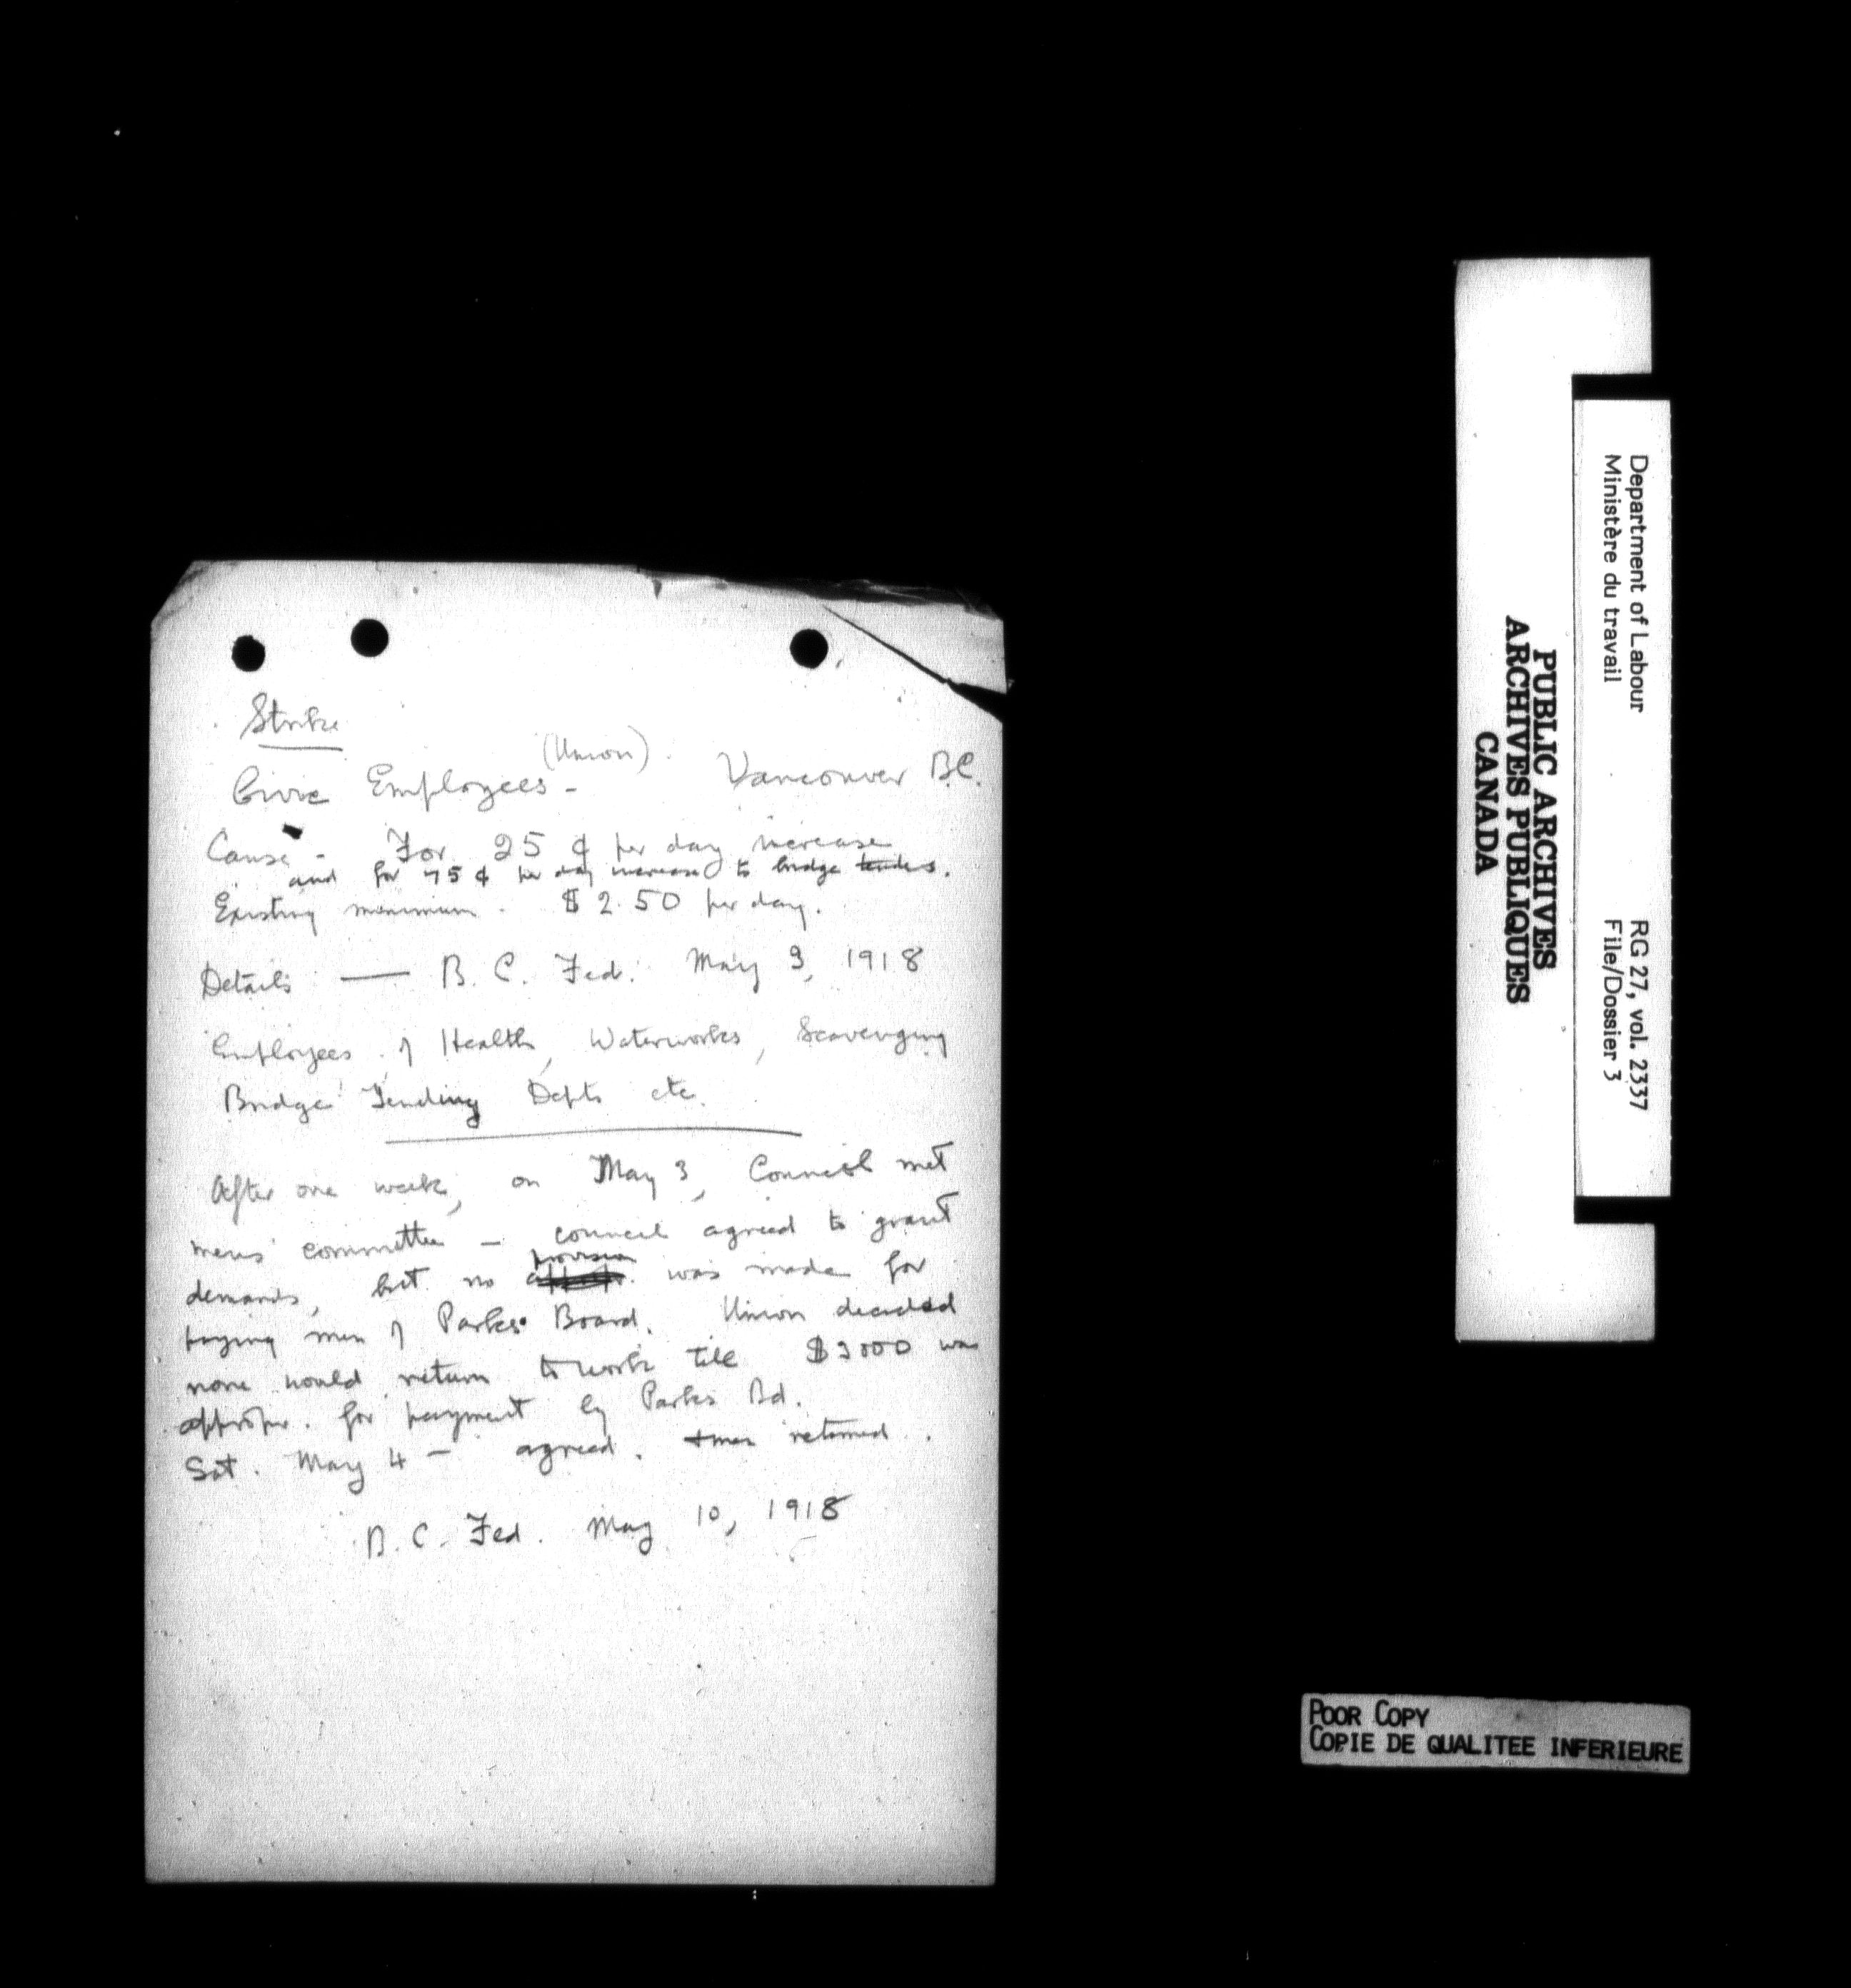 Strike
(Union)
Civic Employees - Vancouver B.C.
Cause - For 25 ¢ per day increase
and for 75 ¢ per day increase to bridge tenders.
Existing minimum - $2.50 per day.
Details — B. C. Fed. May 3, 1918
Employees of Health, Waterworks, Scavenging
Bridge Tending Depts etc.
After one week, on May 3, Council met
mens' committee - council agreed to grant
provision
demands, but no was made for
paying men of Parks Board. Union decided
none would return to work till $3000 was
appropr. for payment by Parks Bd.
Sat. May 4 - agreed. + men returned.
B. C. Fed. May 10, 1918
Department of Labour
Ministère du travail
RG 27, vol. 2337
File/Dossier 3
PUBLIC ARCHIVES
ARCHIVES PUBLIQUES
CANADA
POOR COPY
COPIE DE QUALITEE INFERIEURE